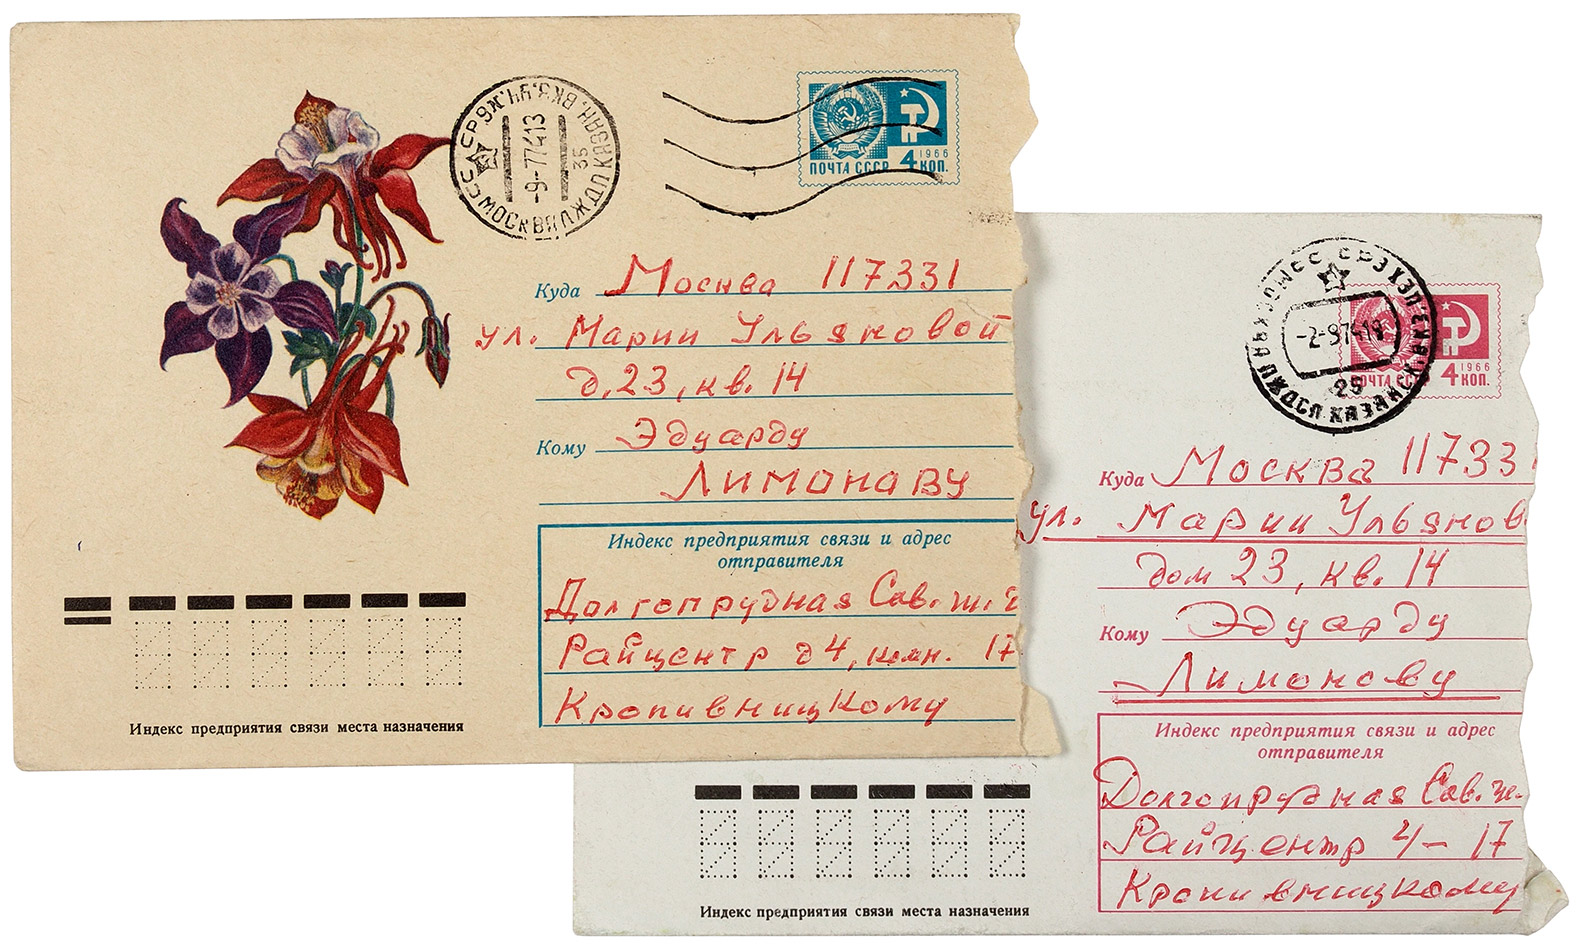 СССР
МОСКВА ПЖДП КАЗАН. ВКЗ.
-9-7
35
ПОЧТА СССР 4 КОП.
1966
Куда Москва 117331
ул. Марии Ульяновой
д. 23, кв. 14
Кому Эдуарду
ЛИМОНАВУ
Индекс предприятия связи и адрес
отправителя
Долгопрудная Сов.
Райцентр д 4, комн. 17
Кропивницкому
Индекс предприятия связи места назначения
МОСКВА ПЖДСП КАЗАНСК.
-2-9
25
ПОЧТА СССР 4 КОП.
1966
Куда Москва 11733
ул. Марии Ульянов
дом 23, кв. 14
Кому Эдуарду
Лимонову
Индекс предприятия связи и адрес
отправителя
Долгопрудная Сов.
Райцентр 4-17
Кропивницкому
Индекс предприятия связи места назначения